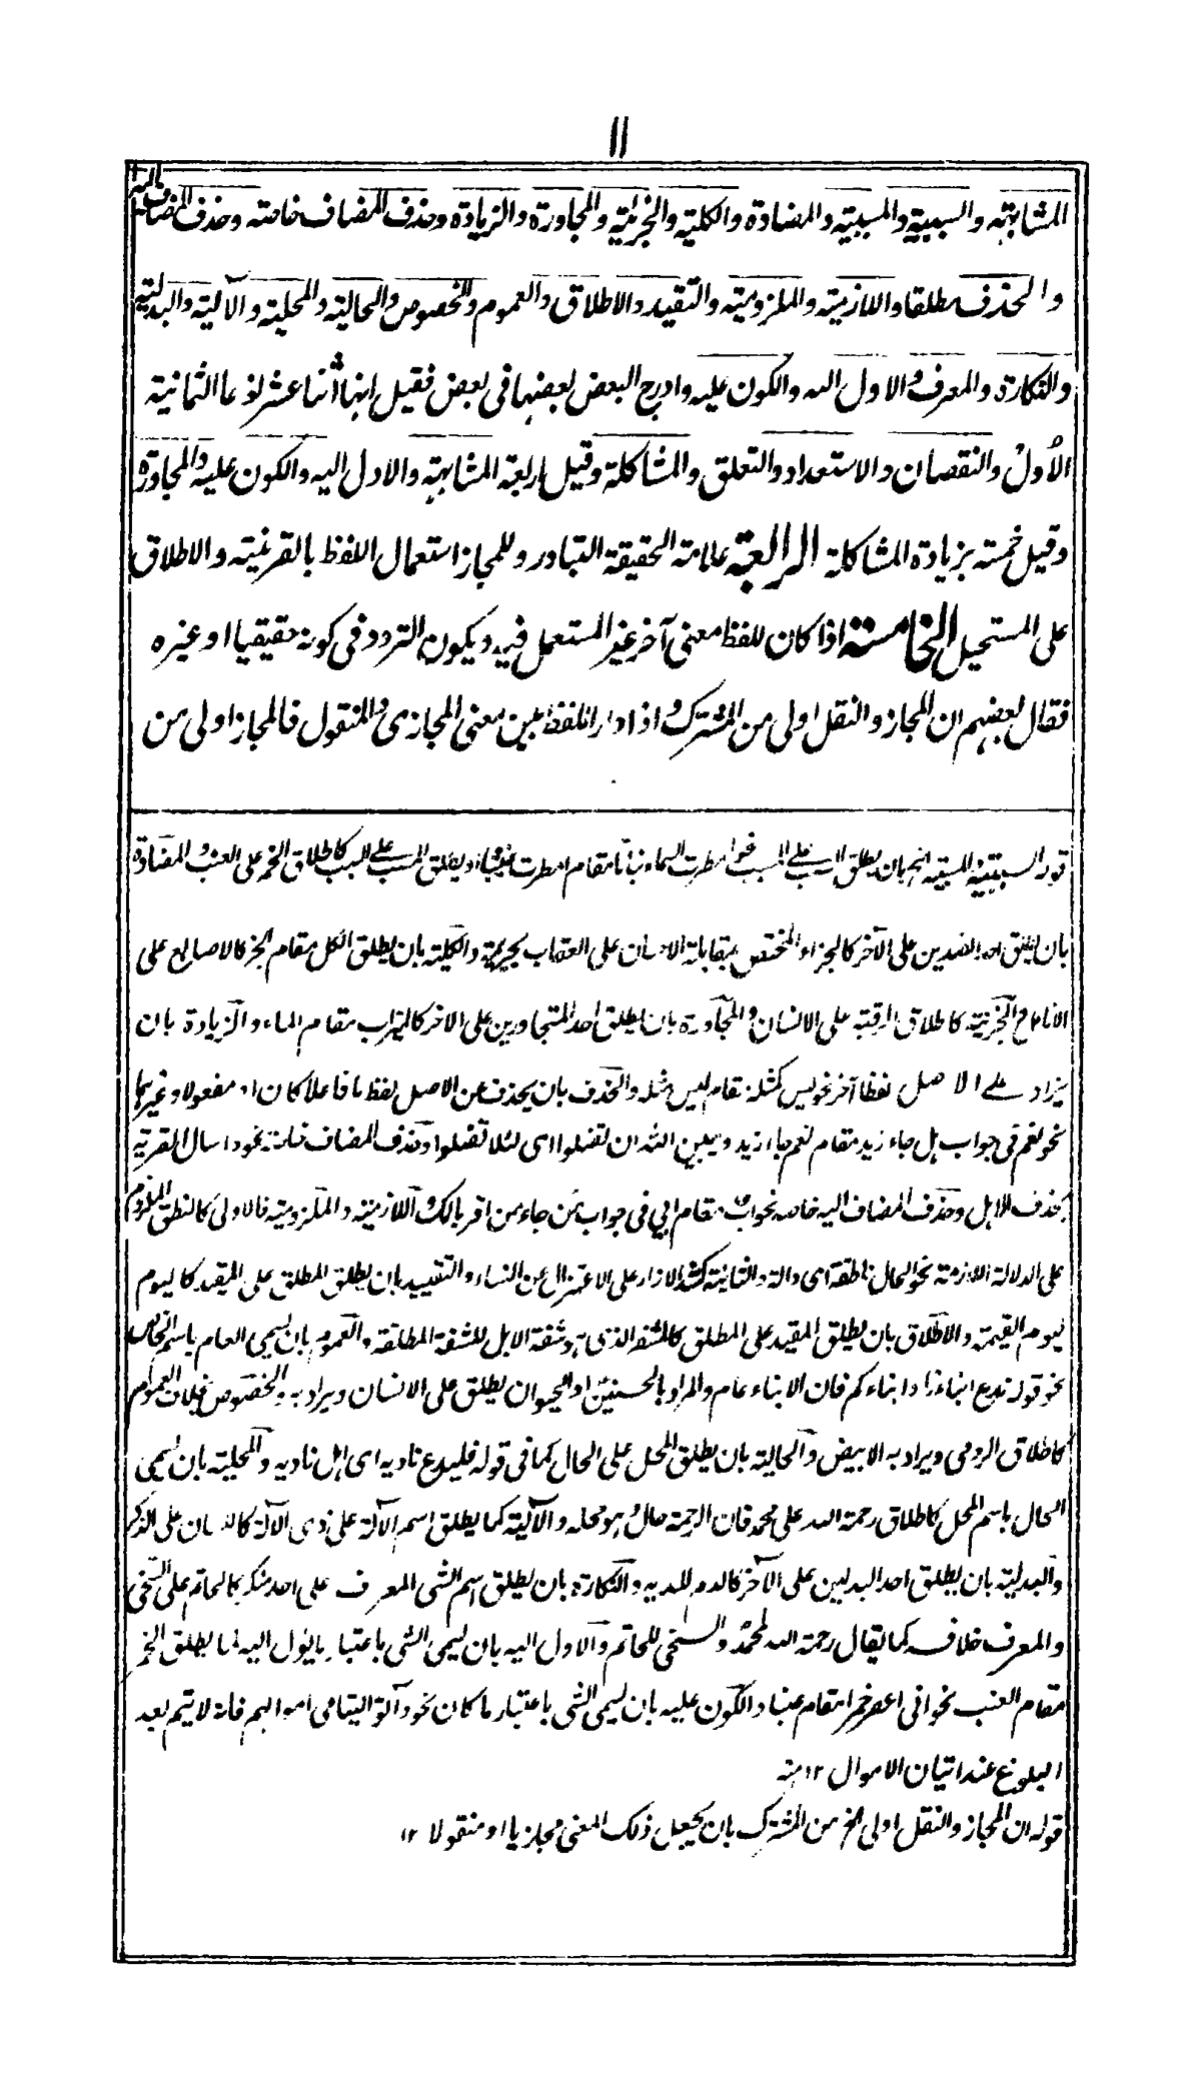 ١١
المشابهة والسببية والمسببية والمضادة والكلية والجزئية والمجاورة والزيادة وحذف المضاف خاصة وحذف المضاف اليه
والحذف مطلقا واللازمية والملزومية والتقييد والاطلاق والعموم والخصوص والحالية والمحلية والآلية والبدلية
والنكارة والمعرف والاول اليه والكون عليه وادرج البعض بعضها فى بعض فقيل انها اثنا عشر نوعا الثمانية
الاول والنقصان والاستعداد والتعلق والمشاكلة وقيل اربعة المشابهة والاول اليه والكون عليه والمجاورة
وقيل خمسة بزيادة المشاكلة الرابعة علامة الحقيقة التبادر وللمجاز استعمال اللفظ بالقرينة والاطلاق
على المستحيل الخامسة اذا كان للفظ معنى آخر غير المستعمل فيه ويكون التردد فى كونه حقيقيا او غيره
فقال بعضهم ان المجاز والنقل اولى من المشترك واذا دار اللفظ بين معنى المجازى والمنقول فالمجاز اولى من
قوله السببية والمسببية الخ بان يطلق السبب على المسبب نحو امطرت السماء نباتا مقام امطرت غيثا او يطلق المسبب على السبب كاطلاق الخمر على العنب والمضادة
بان يطلق احد الضدين على الآخر كالجزاء المختص بمقابلة الاحسان على العقاب بجريمة والكلية بان يطلق الكل مقام الجزء كالاصابع على
الانامل والجزئية كاطلاق الرقبة على الانسان والمجاورة بان يطلق احد المتجاورين على الآخر كالميزاب مقام الماء والزيادة بان
يزاد على الاصل لفظا آخر نحو ليس كمثله مقام ليس مثله والحذف بان يحذف عن الاصل لفظ ما فاعلا كان او مفعولا وغيرهما
نحو نعم فى جواب هل جاء زيد مقام نعم جاء زيد ويبين الله ان تضلوا اى لئلا تضلوا وحذف المضاف خاصة نحو واسأل القرية
بحذف الاهل وحذف المضاف اليه خاصة نحو اب مقام ابى فى جواب من جاء من اقربائك واللازمية والملزومية فالاولى كالنطق الملزوم
على الدلالة اللازمة نحو الحال ناطقة اى دالة والثانية كشد الازار على الاعتزال عن النساء والتقييد بان يطلق المطلق على المقيد كاليوم
ليوم القيمة والاطلاق بان يطلق المقيد على المطلق كالمشفر الذى هو شفة الابل للشفة المطلقة والعموم بان يسمى العام باسم الخاص
نحو قوله ندع ابناءنا وابناءكم فان الابناء عام والمراد بالحسنين او الحيوان يطلق على الانسان ويراد به والخصوص بخلاف العموم
كاطلاق الرومى ويراد به الابيض والحالية بان يطلق المحل على الحال كما فى قوله فليدع ناديه اى اهل ناديه والمحلية بان يسمى
الحال باسم المحل كاطلاق رحمة الله على محمد فان الرحمة حال وهو محله والآلية كما يطلق اسم الآلة على ذى الآلة كاللسان على الذكر
والبدلية بان يطلق احد البدلين على الآخر كالدم للدية والنكارة بان يطلق اسم الشى المعرف على احد منكر كالحاتم على السخى
والمعرف خلافه كما يقال رحمة الله لمحمد والسخى للحاتم والاول اليه بان يسمى الشى باعتبار ما يؤل اليه كما يطلق الخمر
مقام العنب نحو انى اعصر خمرا مقام عنبا والكون عليه بان يسمى الشى باعتبار ما كان نحو وآتوا اليتامى اموالهم فانه لا يتم بعد
البلوغ عند اتيان الاموال ١٢ منه
قوله ان المجاز والنقل اولى الخ من المشترك بان يجعل ذلك المعنى مجازيا او منقولا ١٢